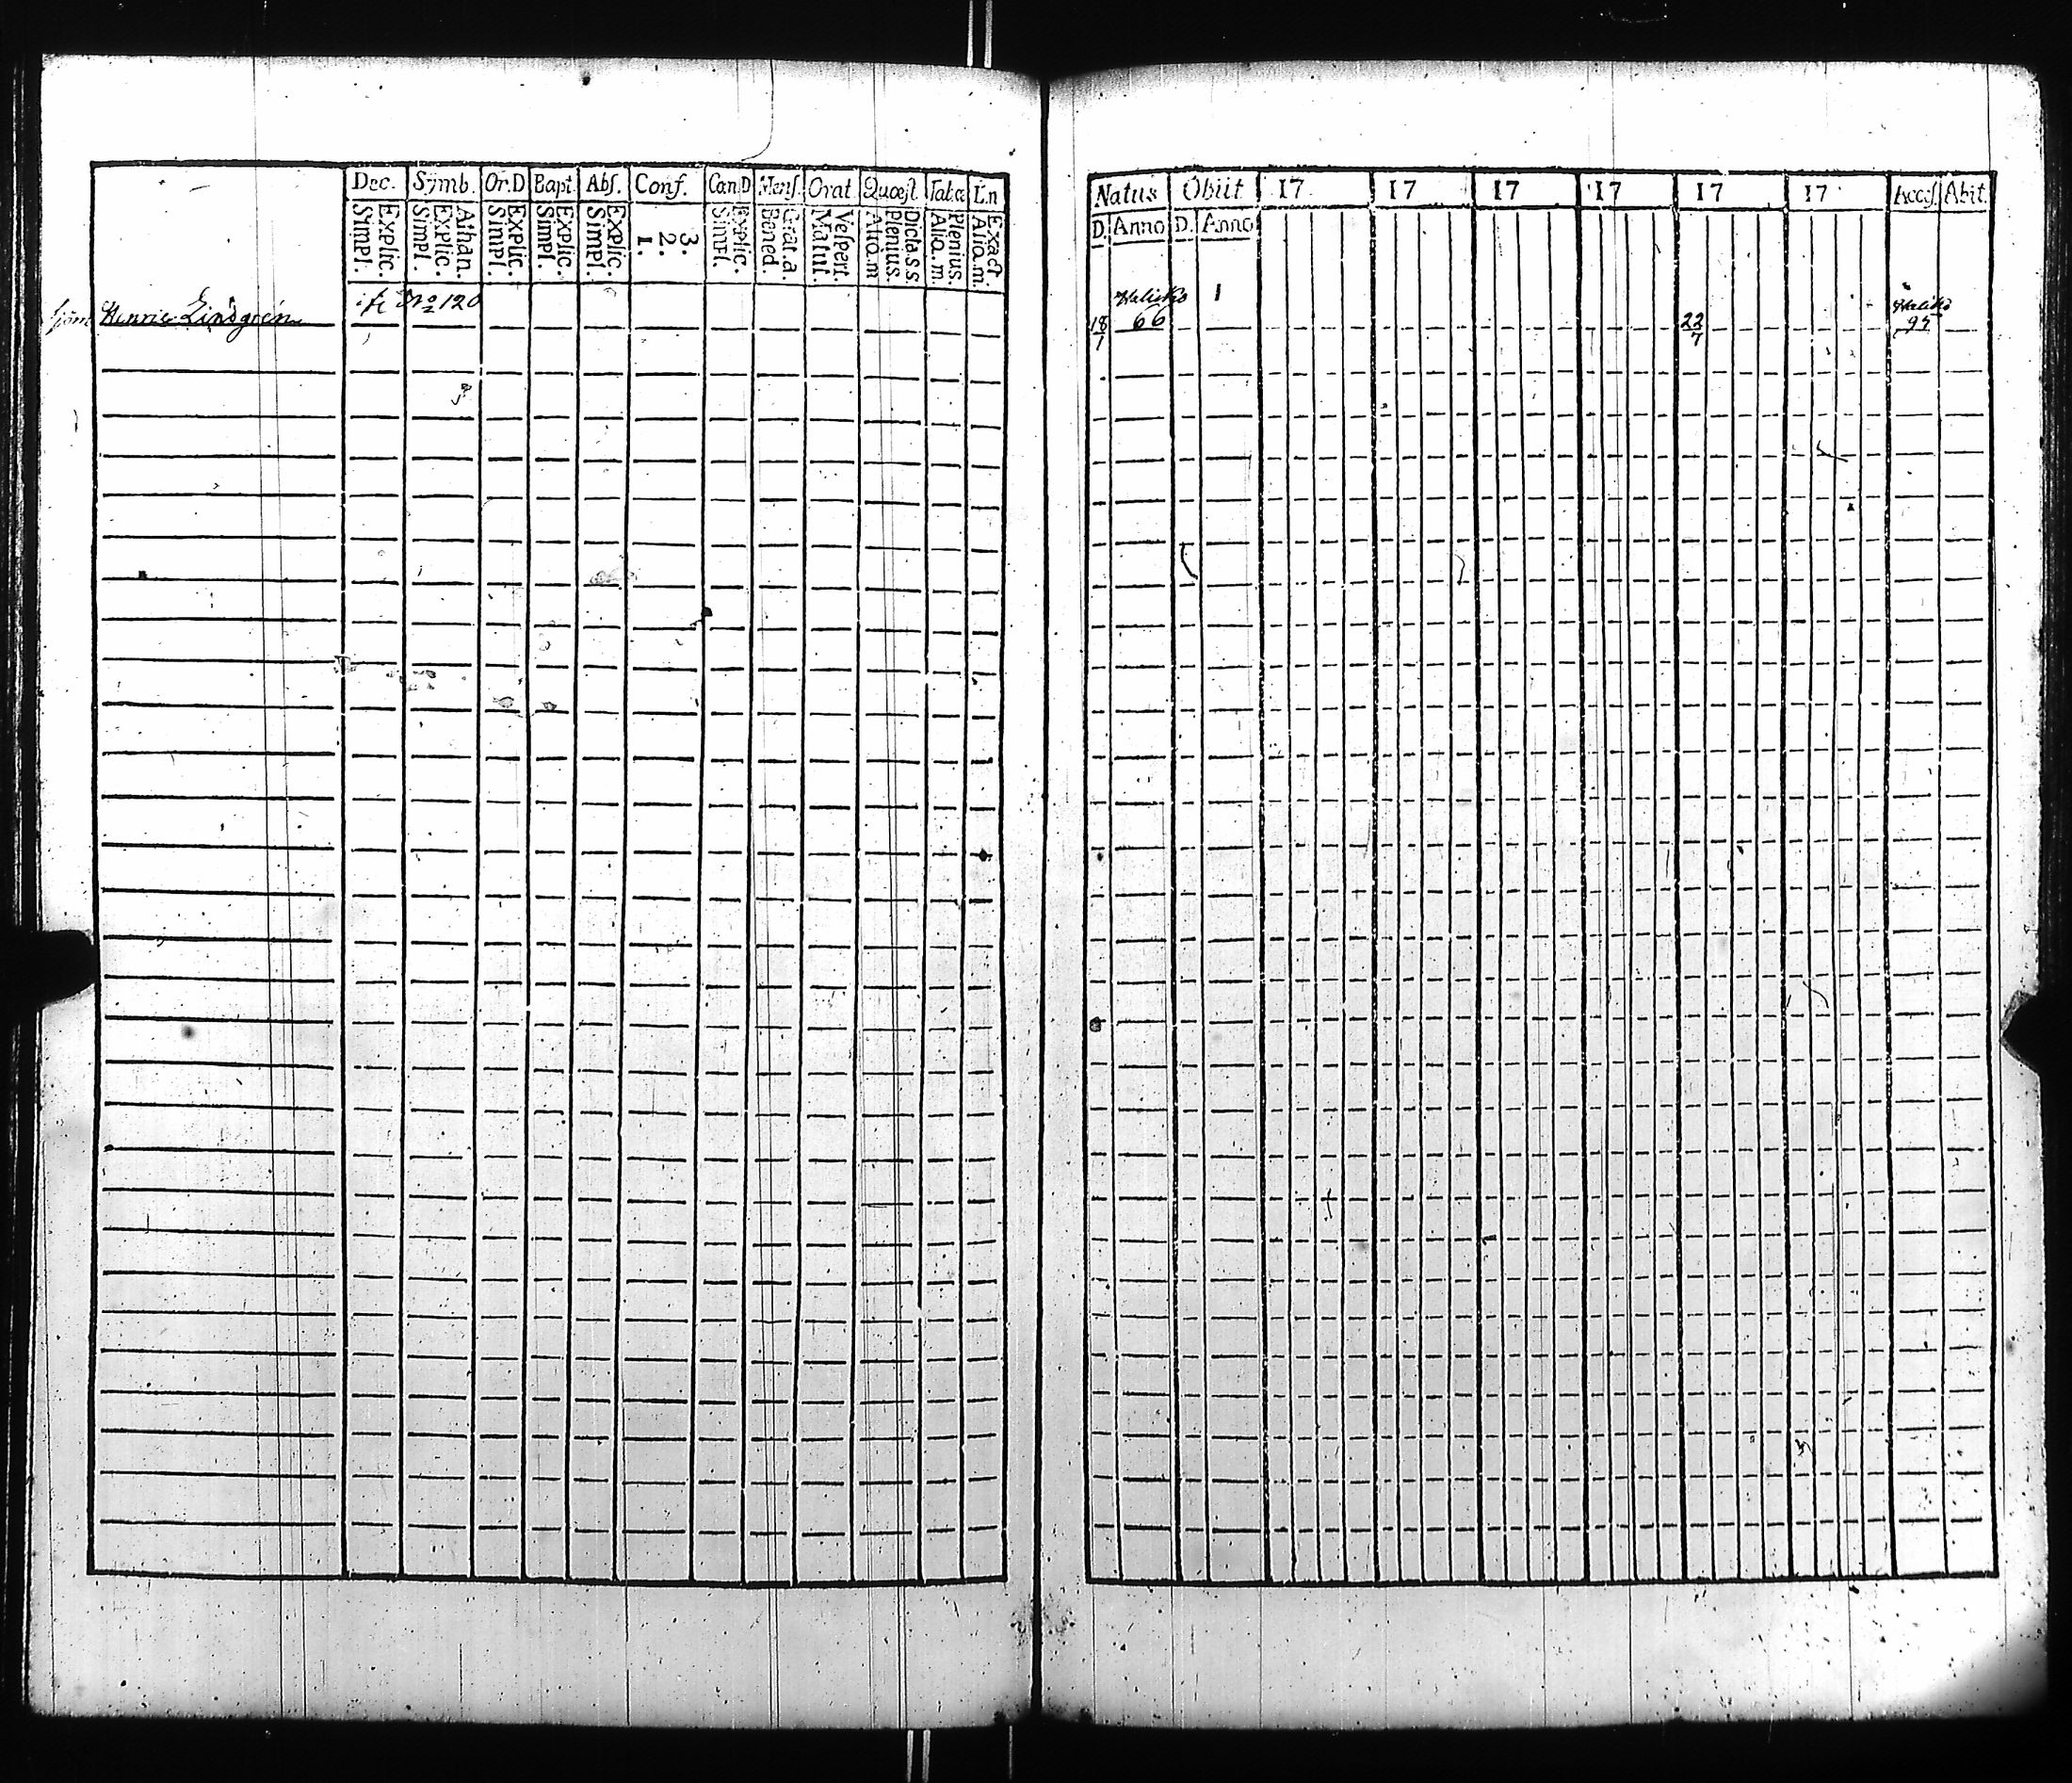 Dec. Symb. Or.D Bapt. Abs. Conf. Can D Mens. Orat Quæst. Tabæ L.n
Explic. Simpl. Athan. Explic. Simpl. Explic. Simpl. Explic. Simpl. Explic. Simpl. 3. 2. 1. Explic. Simpl. Grat.a. Bened. Vespert. Matut. Dicta.s.s. Plenius. Aliq.m Plenius. Aliq.m. Exact Aliq.m.
No 120
Henric Lindgrén
Natus Obiit 17 17 17 17 17 17 Access. Abit.
D. Anno D. Anno
Halicko Haliko
18/1 66 22/7